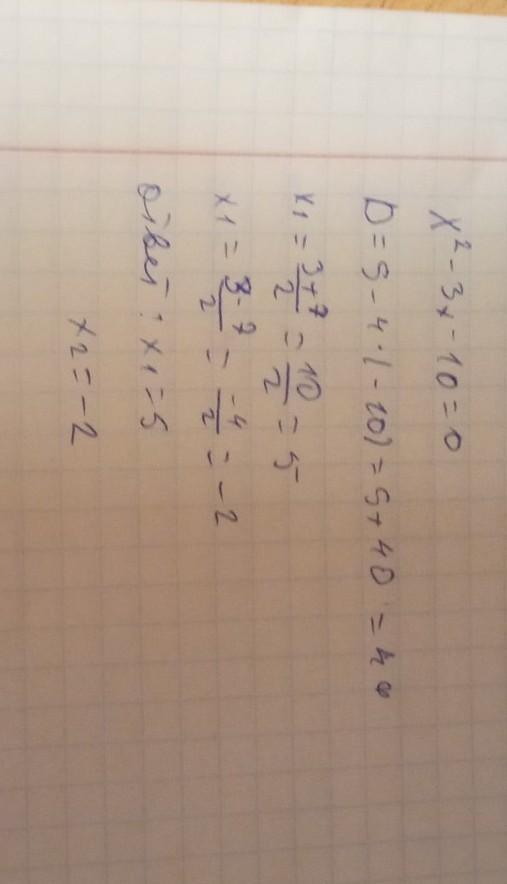 x² - 3x - 10 = 0
D = 9 - 4·(-10) = 9 + 40 = 49
x1 = 3+7/2 = 10/2 = 5
x1 = 3-7/2 = -4/2 = -2
Ответ: x1 = 5
x2 = -2